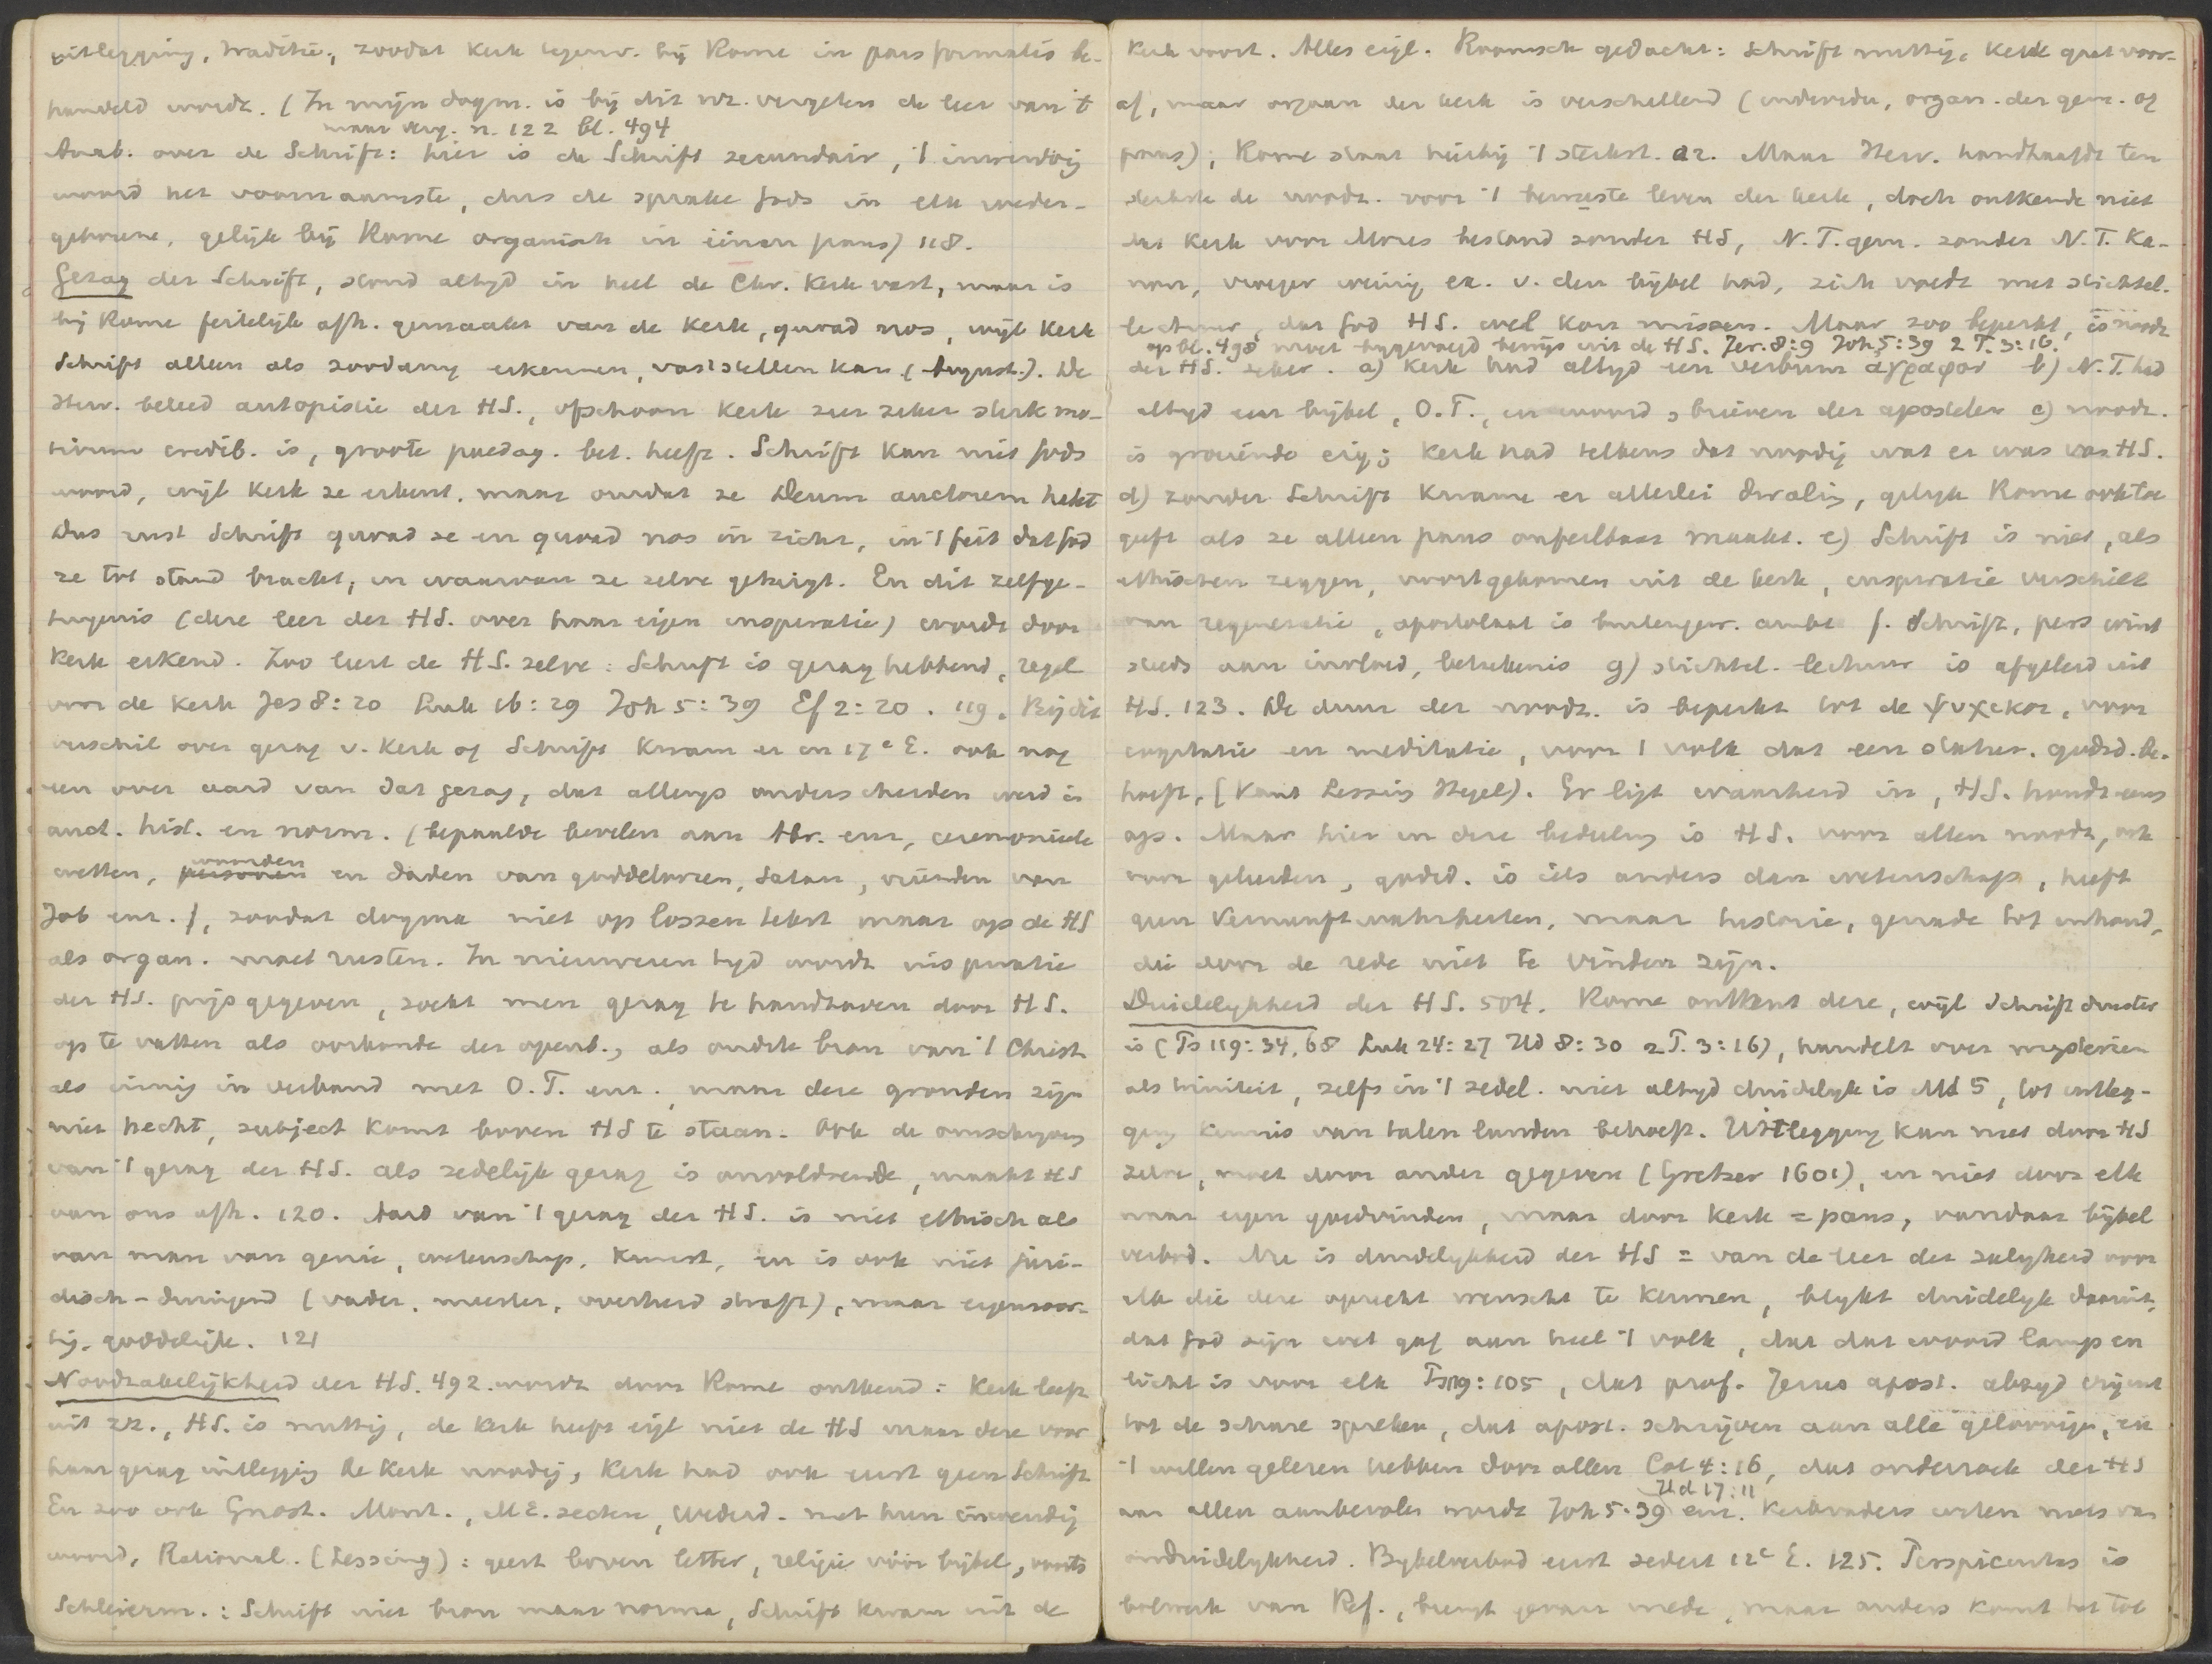 uitlegging, traditie, zoodat kerk tegenw. bij Rome in pars formalis be-
handeld wordt. (In mijn dogm. is bij dit nr. vergeten de leer van 't
maar verg. n. 122 bl. 494
Anab. over de Schrift: hier is de Schrift secundair, 't inwendig
woord het voornaamste, dus de sprake Gods in elk weder-
geborene, gelijk bij Rome organisch in éénen paus) 118.
Gezag der Schrift, stond altijd in heel de Chr. Kerk vast, maar is
bij Rome feitelijk afh. gemaakt van de Kerk, quoad nos, wijl Kerk
Schrift alleen als zoodanig erkennen, vaststellen kan (August.). De
Herv. beleed autopistie der HS., ofschoon Kerk zeer zeker sterk mo-
tivum credib. is, groote paedag. bet. heeft. Schrift kan niet Gods
woord, wijl Kerk ze erkent, maar omdat ze Deum auctorem hebt
Dus rust Schrift quoad se en quoad nos in zich, in 't feit dat God
ze tot stand bracht, en waarvan ze zelve getuigt. En dit zelfge-
tuigenis (deze leer der HS. over haar eigen inspiratie) wordt door
Kerk erkend. Zoo leert de HS. zelve: Schrift is gezaghebbend, regel
voor de Kerk Jes 8:20 Luk 16:29 Joh 5:39 Ef 2:20. 119. Bij dit
verschil over gezag v. Kerk of Schrift kwam er in 17e E. ook nog
een over aard van dat gezag, dat allengs onderscheiden werd in
auct. hist. en norm. (bepaalde bevelen aan Abr. enz, ceremonieele
woorden
wetten, personen en daden van goddeloozen, Satan, vrienden van
Job enz.), zoodat dogma niet op lossen tekst maar op de HS
als organ. moet rusten. In nieuweren tijd wordt inspiratie
der HS. prijsgegeven, zoekt men gezag te handhaven door HS.
op te vatten als oorkonde der openb., als oudste bron van 't Christ
als eenig in verband met O.T. enz., maar deze gronden zijn
niet hecht, subject komt boven HS te staan. Ook de omschrijving
van 't gezag der HS. als zedelijk gezag is onvoldoende, maakt HS
van ons afh. 120. Aard van 't gezag der HS. is niet ethisch als
van man van genie, wetenschap, kunst, en is ook niet juri-
disch-dwingend (vader, meester, overheid straft), maar eigensoor-
tig, goddelijk. 121
Noodzakelijkheid der HS. 492. wordt door Rome ontkend: Kerk leeft
uit zz., HS. is nuttig, de Kerk heeft eigl niet de HS maar deze voor
haar gezag uitlegging de Kerk noodig, Kerk had ook eerst geen Schrift
En zoo ook Gnost. Mont., ME. secten, Wederd. met hun inwendig
woord, Rational. (Lessing): geest boven letter, religie vóór bijbel, voorts
Schleierm.: Schrift niet bron maar norma, Schrift kwam uit de
Kerk voort. Alles eigl. Roomsch gedacht: Schrift nuttig, Kerk gaat voor-
af, maar orgaan der kerk is verschillend (individu, organ. der gem. of
paus), Rome staat hierbij 't sterkst. Maar Herv. handhaafde ten
sterkste de noodz. voor 't bewuste leven der kerk, doch ontkende niet
dat Kerk voor Mozes bestond zonder HS, N.T. gem. zonder N.T. Ka-
non, vroeger weinig ex. v. den bijbel had, zich voedt met stichtel.
lectuur, dat God HS. wel kon missen. Maar zoo beperkt, is noodz
op bl. 498 moet bygevoegd bewijs uit de HS. Jer. 8:9 Joh 5:39 2 T. 3:16.
der HS. zeker. a) Kerk had altijd een verbum αγραφον b) N.T. had
altijd een bijbel, O.T., en woord, brieven der apostelen c) noodz.
is groeiende eig; Kerk had telkens dat noodig wat er was van HS.
d) zonder Schrift kwame er allerlei dwaling, gelijk Rome ook toe
geeft als ze alleen paus onfeilbaar maakt. e) Schrift is niet, als
ethischen zeggen, voortgekomen uit de kerk, inspiratie verschilt
van regeneratie, apostolaat is buitengew. ambt f. Schrift, pers wint
steeds aan invloed, beteekenis g) stichtel. lectuur is afgeleid uit
HS. 123. De duur der noodz. is beperkt tot de ψυχικοι, voor
cogitatie en meditatie, voor 't volk dat een statut. godsd. be-
hoeft, (Kant Lessing Hegel). Er ligt waarheid in, HS. houdt eens
op. Maar hier in deze bedeeling is HS. voor allen noodz, ook
voor geleerden, godsd. is iets anders dan wetenschap, heeft
geen Vernunftwahrheiten, maar historie, genade tot inhoud,
die door de rede niet te vinden zijn.
Duidelijkheid der HS. 504. Rome ontkent deze, wijl Schrift duister
is (Ps 119:34, 68 Luk 24:27 Hd 8:30 2 T. 3:16), handelt over mysteriën
als triniteit, zelfs in 't zedel. niet altijd duidelijk is Mt 5, tot uitleg-
ging kennis van talen landen behoeft. Uitlegging kan niet door HS
zelve, moet door ander gegeven (Gretser 1601), en niet door elk
naar eigen goedvinden, maar door Kerk = paus, vandaar bijbel
verbod. Nu is duidelijkheid der HS = van de leer der zaligheid voor
elk die deze oprecht wenscht te kennen, blijkt duidelijk daaruit,
dat God zijn wet gaf aan heel 't volk, dat dat woord lamp en
licht is voor elk Ps 119:105, dat prof. Jezus apost. altijd vrijuit
tot de schare spreken, dat apost. schrijven aan alle geloovigen, en
't willen gelezen hebben door allen Col 4:16, dat onderzoek der HS
Hd 17:11
aan allen aanbevolen wordt Joh 5:39 enz. Kerkvaders weten niets van
onduidelijkheid. Bijbelverbod eerst sedert 12e E. 125. Perspicuitas is
bolwerk van Ref., brengt gevaar mede, maar anders komt het tot